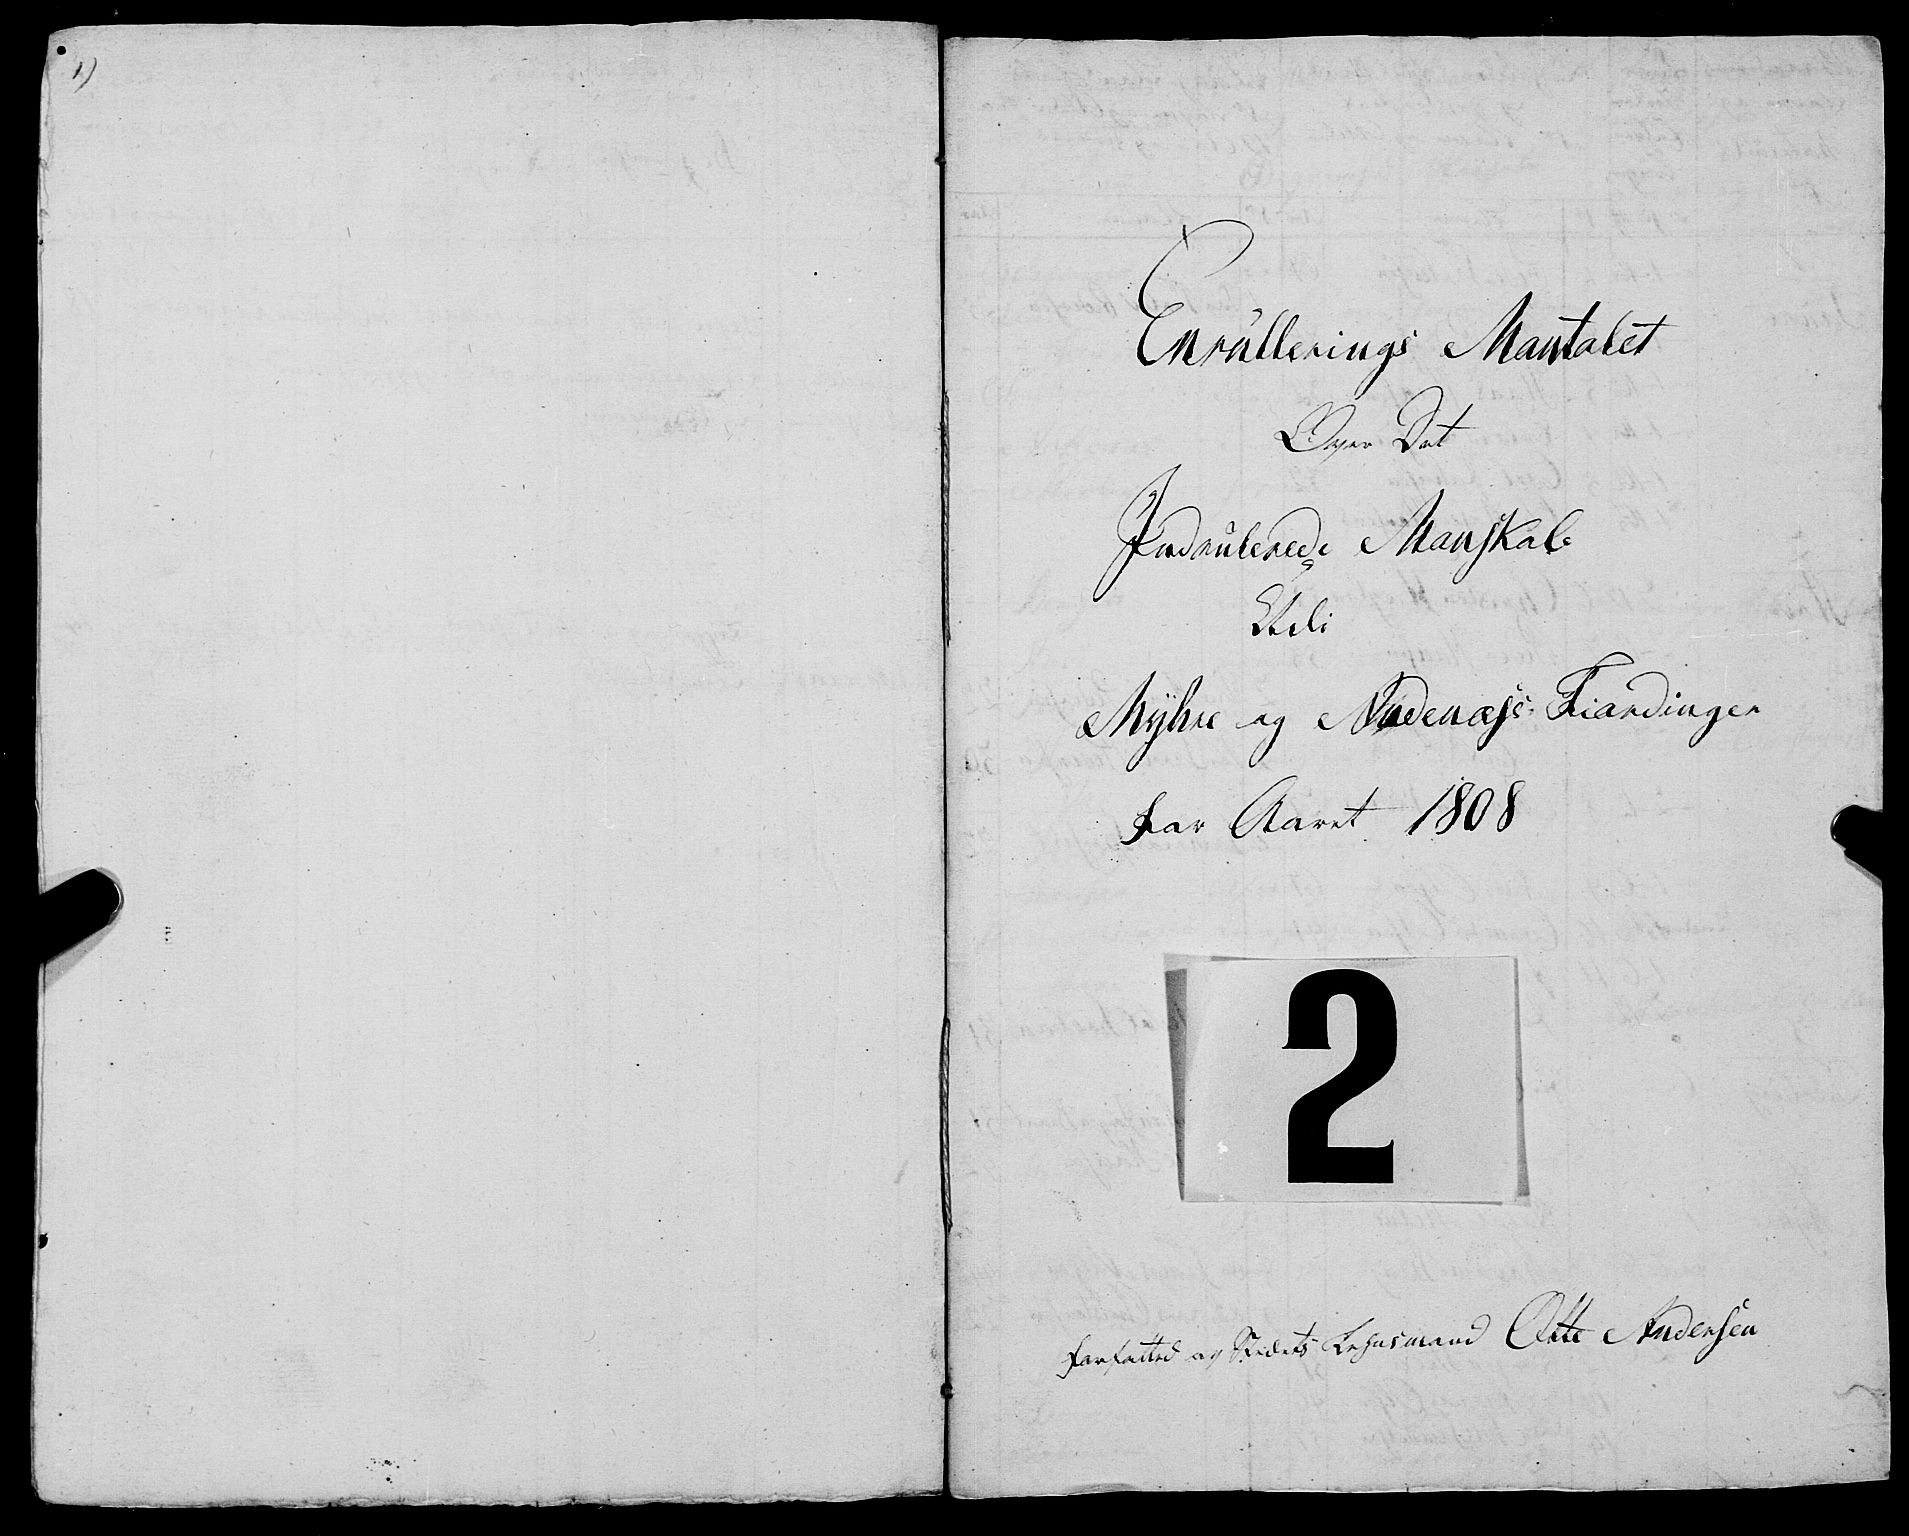 1)
Enrullerings Mantalet
Over Det
Indrulerede Manskab
Udi
Myhre og Andenæss Fiardinger
for Aaret 1808
2
forfatted af Stedets Lehnsmand Otte Andersen